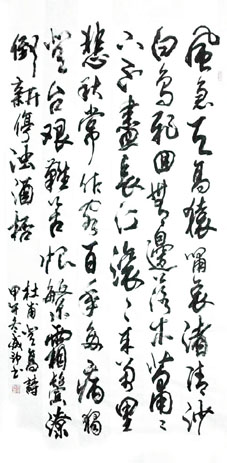 風急天高猿嘯哀渚清沙
白鳥飛回無邊落木蕭〻
下不盡長江滾〻來萬里
悲秋常作客百年多病獨
登台艱難苦恨繁霜鬢潦
倒新停濁酒桮
杜甫登高詩
甲午冬